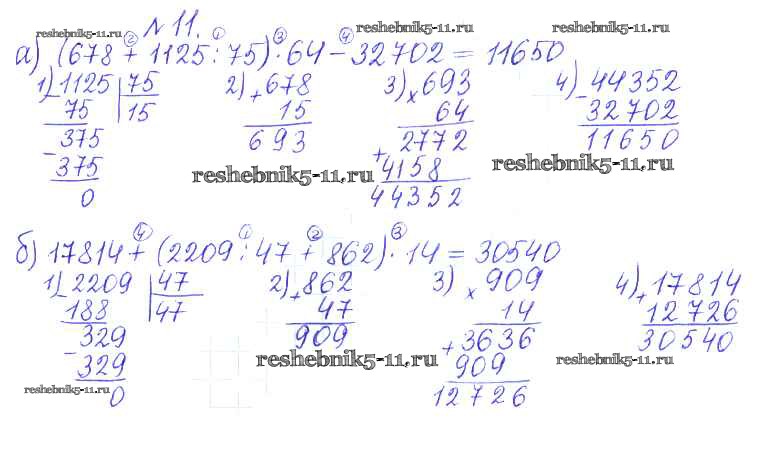 № 11.
reshebnik5-11.ru
reshebnik5-11.ru
② ① ③ ④
а) (678 + 1125 : 75) · 64 − 32702 = 11650
1) 1125 | 75 2) 678 3) 693 4) 44352
− 75 15 + 15 × 64 − 32702
375 693 2772 11650
− 375 + 4158
reshebnik5-11.ru
reshebnik5-11.ru
0 44352
④ ① ② ③
б) 17814 + (2209 : 47 + 862) · 14 = 30540
1) 2209 | 47 2) 862 3) 909 4) 17814
− 188 47 + 47 × 14 + 12726
329 909 3636 30540
− 329 + 909
reshebnik5-11.ru
reshebnik5-11.ru
reshebnik5-11.ru
0 12726